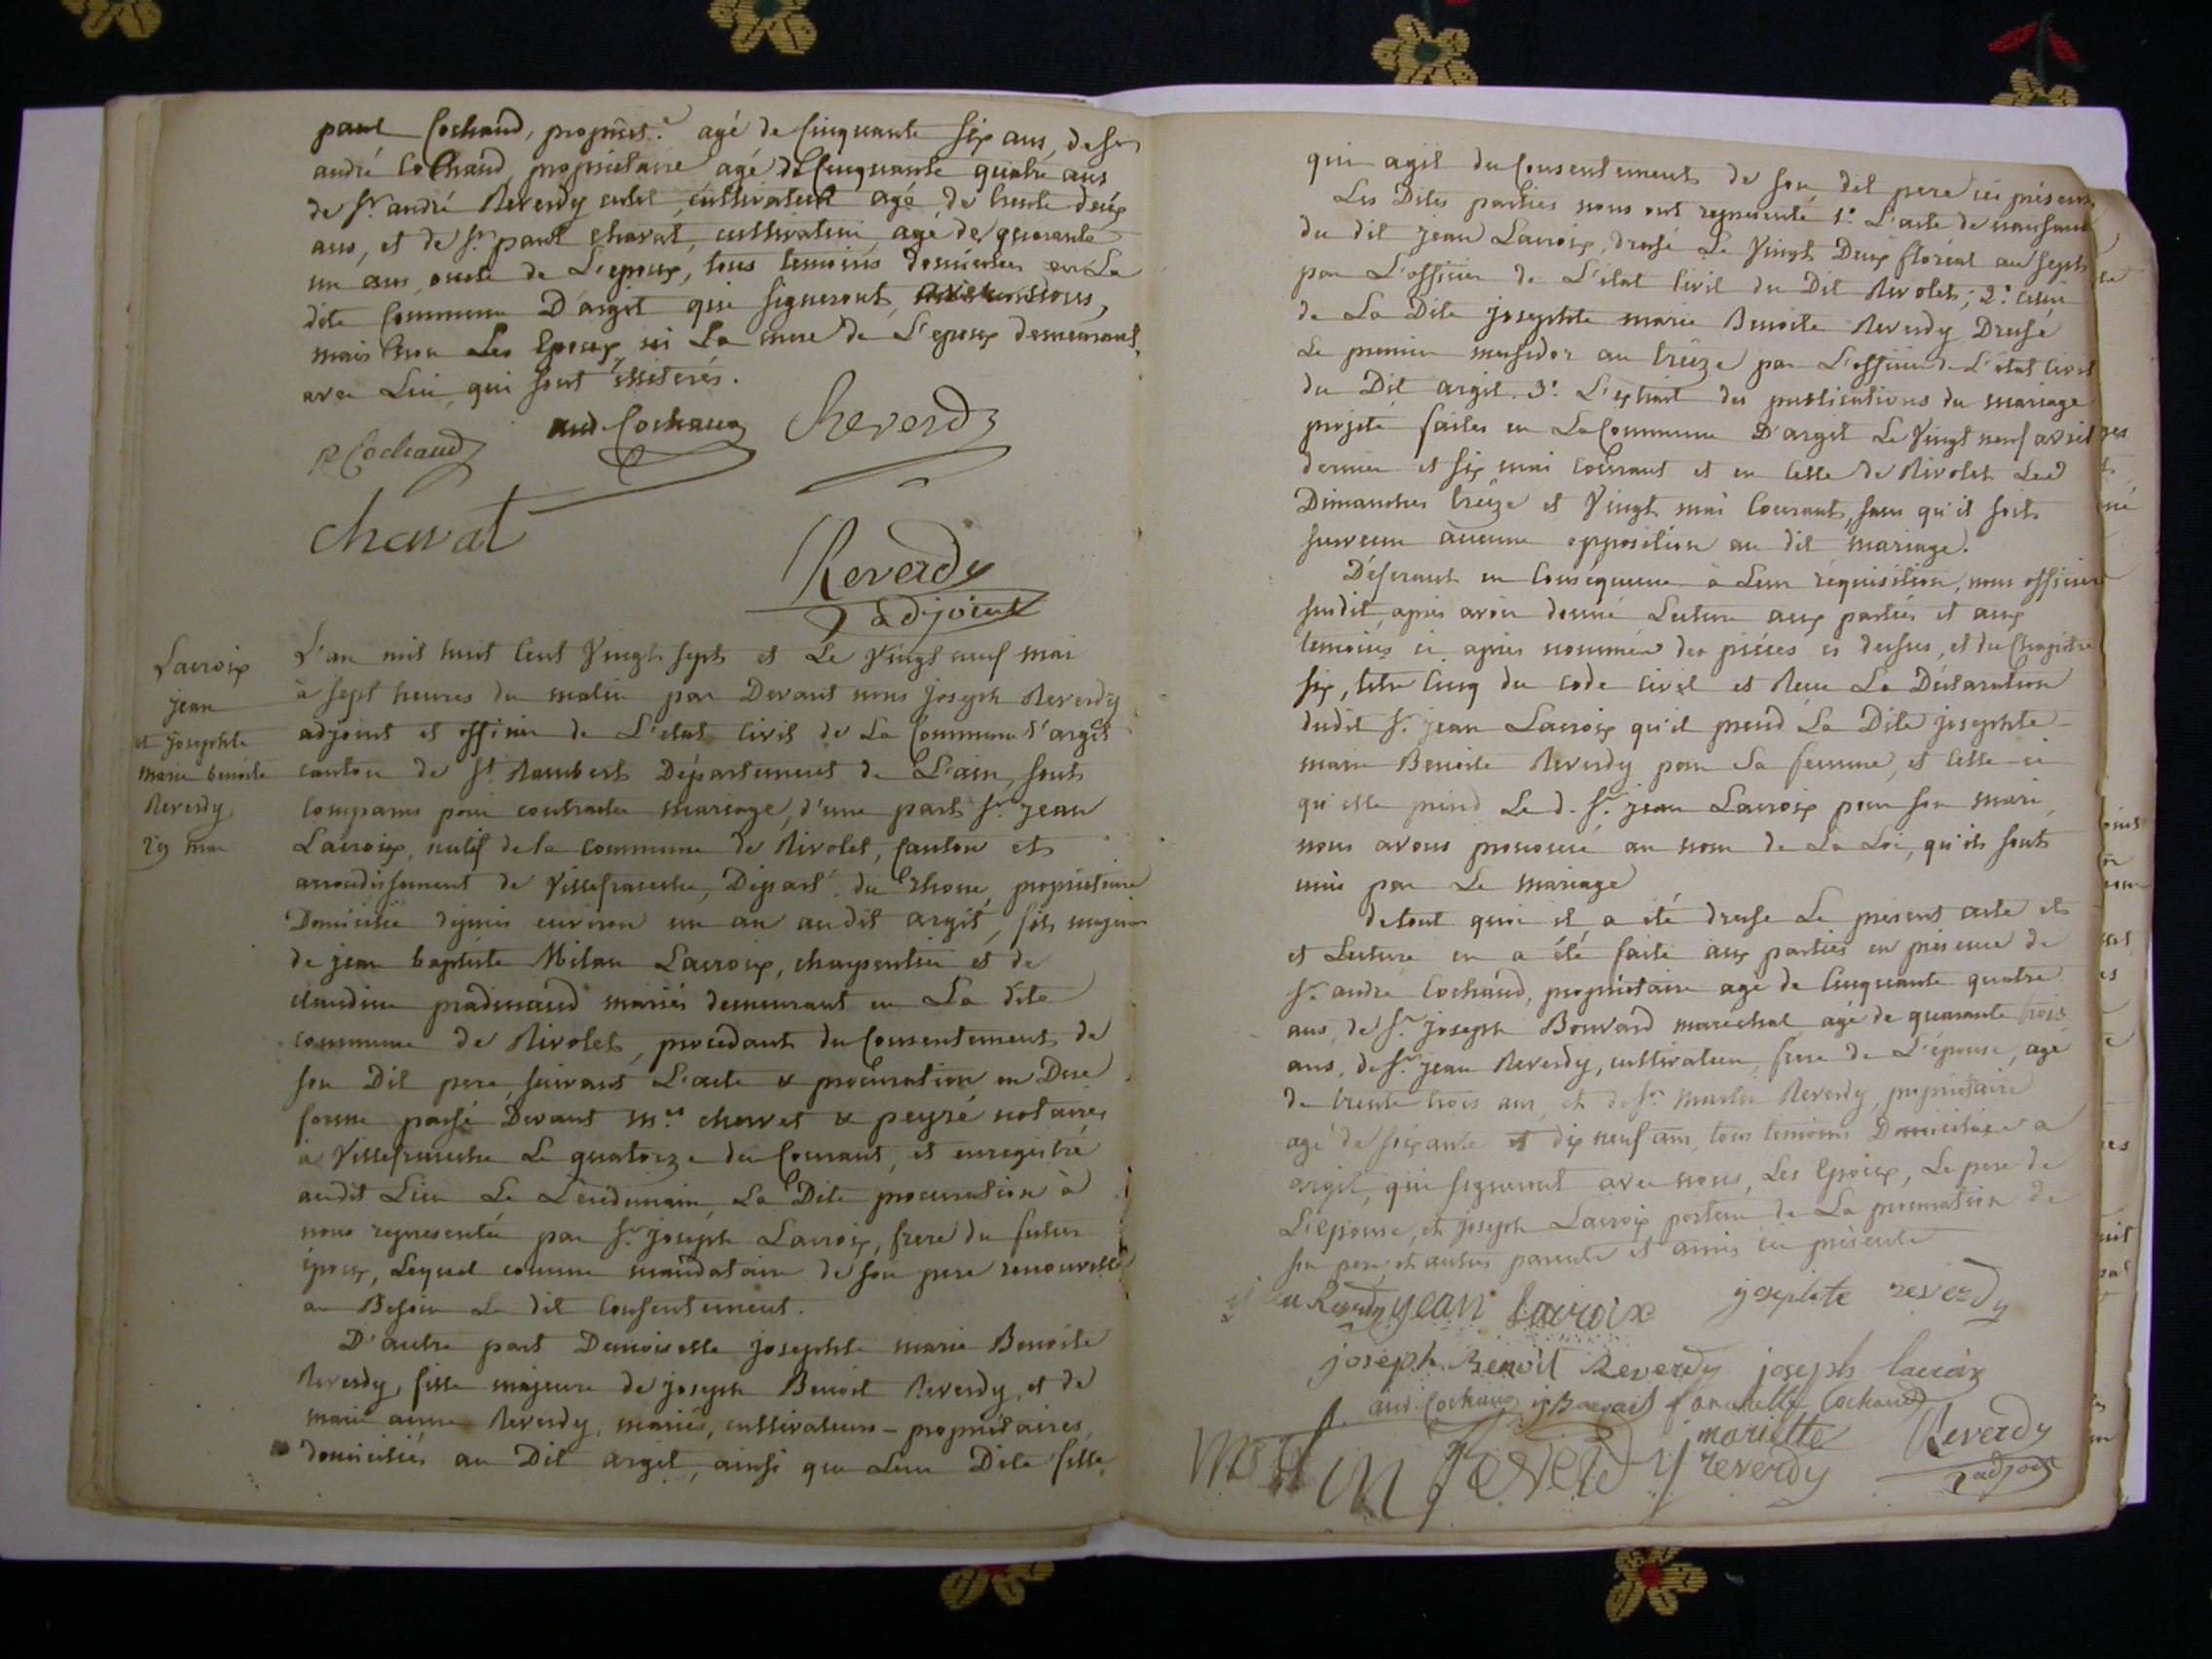 paul Cochaud, propriét.e agé de Cinquante six ans, de sr
andré Cochaud, propriétaire agé de Cinquante quatre ans
de sr. andré Reverdy cultivateur agé de trente deux
ans, et de sr. paul chavat, cultivateur agé de quarante
un ans oncle de L'epoux, tous temoins domiciliés en La
dite Commune D'argit qui signeront avec nous,
mais non Les Epoux ni La mere de L'epoux demeurant
avec Lui, qui sont illeterés.
P Cochaud and. Cochaud Reverdy
chavat
Reverdy
adjoint
Lacroix
jean
et josephte
marie benoite
Reverdy
29 mai
L'an mil huit Cent Vingt sept et Le Vingt neuf mai
à sept heures du matin par Devant nous joseph Reverdy
adjoint et officier de L'etat Civil de La Commune d'argit
canton de St. Rambert Département de L'ain, sont
comparus pour contracter mariage, d'une part sr. jean
Lacroix, natif de la commune de Rivolet, Canton et
arrondissement de Villefranche, Départ.t du Rhone, propriétaire
Domicilié depuis environ un an audit argit, fils majeur
de jean baptiste Milan Lacroix, charpentier et de
claudine pradinaud mariés demeurant en La dite
commune de Rivolet, procedant du Consentement de
son Dit pere, suivant L'acte & procuration en Due
forme passé Devant m.es chervet & peyré notaires
à Villefranche Le quatorze du Courant, et enregistré
audit Lieu Le Lendemain, La Dite procuration à
nous representée par sr. joseph Lacroix, frere du futur
époux, Lequel comme mandataire de son pere renouvelle
au Besoin Le dit Consentement.
D'autre part Demoiselle josephte marie Benoite
Reverdy, fille majeure de joseph Benoit Reverdy, et de
marie anne Reverdy, mariés, cultivateurs - propriétaires,
domiciliés au Dit argit, ainsi que Leur Dite fille,
qui agit du Consentement de son dit pere ici présent
Les Dites parties nous ont representé 1.o L'acte de naissance
du dit jean Lacroix, dressé Le Vingt Deux floréal an sept
par L'officier de L'etat Civil du Dit Rivolet; 2.o Celui
de La Dite josephte marie Benoite Reverdy Dressé
Le premier messidor an treize par L'officier de L'état Civil
du Dit argit. 3.o L'extrait des publications du mariage
projeté faites en La Commune D'argit Le Vingt neuf avril
dernier et six mai Courant et en Celle de Rivolet Les
Dimanches treize et Vingt mai Courant, sans qu'il soit
survenu aucune opposition au dit mariage.
Déferant en Conséquence à Leur réquisition, nous officier
susdit, apres avoir donné Lecture aux parties et aux
temoins ci après nommés des piéces ci dessus, et du Chapitre
six, titre Cinq du code Civil et Recu La Déclaration
dudit sr. jean Lacroix qu'il prend La Dite josephte
marie Benoite Reverdy pour sa femme, et Celle ci
qu'elle prend Le d. sr. jean Lacroix pour son mari,
nous avons prononcé au nom de La Loi, qu'ils sont
unis par Le mariage
de tout quoi il a été dressé Le présent acte et
et Lecture en a été faite aux parties en présence de
sr. andre Cochaud, propriétaire agé de Cinquante quatre
ans, de sr. joseph Bouvard maréchal agé de quarante trois
ans, de sr. jean Reverdy, cultivateur, frere de L'épouse, agé
de trente trois ans, et de sr. martin Reverdy, propriétaire
agé de soixante et dix neuf ans, tous temoins Domiciliés a
argit, qui signeront avec nous, Les Epoux, Le pere de
L'epouse, et joseph Lacroix porteur de La procuration de
son pere et autres parents et amis ici présents
Reverdy jean Lacroix josephte reverdy
joseph Benoit Reverdy joseph lacroix
and. Cochaud Cochaud
martin Reverdy mariette reverdy Reverdy
adjoint